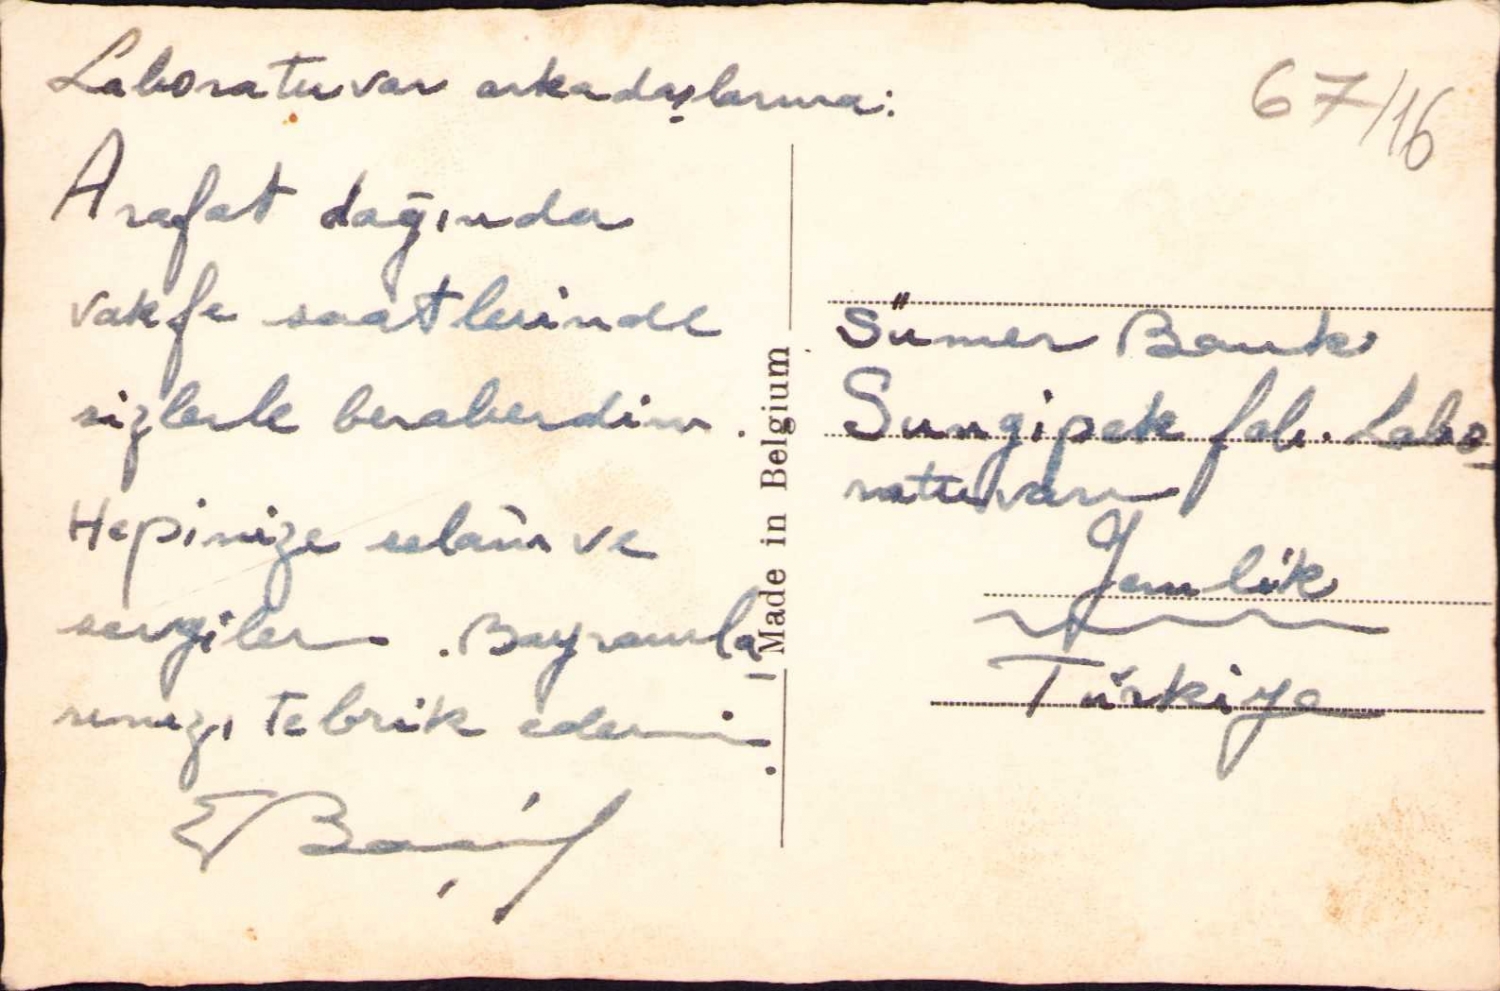 Laboratuvar arkadaşlarıma:
Arafat dağında
vakfe saatlerinde
sizlerle beraberdim.
Hepinize selâm ve
sevgiler. Bayramla-
rınızı tebrik ederim.
67/16
Made in Belgium
Sümer Bank
Sungipek fab. Labo-
ratuvarı
Gemlik
Türkiye